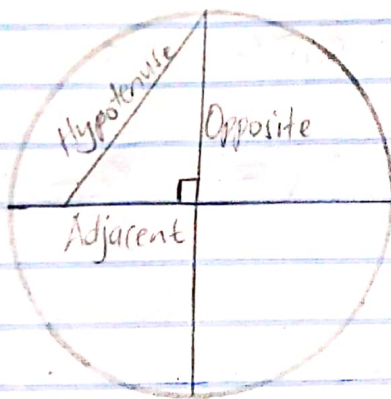 Hypotenuse
Opposite
Adjacent